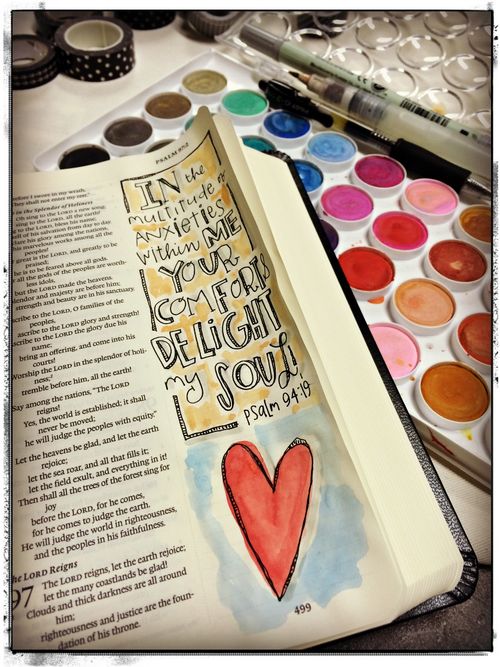 PSALM
swore in my wrath,
shall not enter my rest."
in the Splendor of Holiness
Oh sing to the LORD a new song;
sing to the LORD, all the earth!
of his salvation from day to day.
his glory among the nations,
marvelous works among all the
peoples!
great is the LORD, and greatly to be
praised;
he is to be feared above all gods.
all the gods of the peoples are worth-
less idols,
but the LORD made the heavens.
Splendor and majesty are before him;
strength and beauty are in his sanctuary.
Ascribe to the LORD, O families of the
peoples,
ascribe to the LORD glory and strength!
Ascribe to the LORD the glory due his
name;
bring an offering, and come into his
courts!
Worship the LORD in the splendor of holi-
ness;
tremble before him, all the earth!
Say among the nations, "The LORD
reigns!
Yes, the world is established; it shall
never be moved;
he will judge the peoples with equity."
Let the heavens be glad, and let the earth
rejoice;
let the sea roar, and all that fills it;
let the field exult, and everything in it!
Then shall all the trees of the forest sing for
joy
before the LORD, for he comes,
for he comes to judge the earth.
He will judge the world in righteousness,
and the peoples in his faithfulness.
The LORD Reigns
97 The LORD reigns, let the earth rejoice;
let the many coastlands be glad!
Clouds and thick darkness are all around
him;
righteousness and justice are the foun-
dation of his throne.
IN the
multitude of
ANXIETIES
within ME
YOUR
COMFORTS
DELIGHT
my SOUL!
psalm 94:19
499